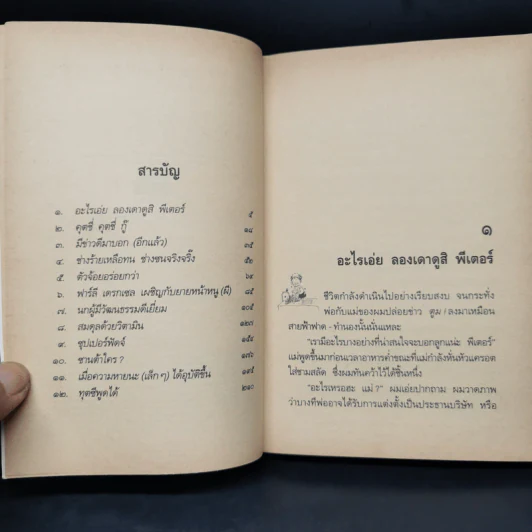 สารบัญ
๑. อะไรเอ่ย ลองเดาดูสิ พีเตอร์ ๕
๒. คุตซี่ คุตซี่ กู๊ ๑๘
๓. มีข่าวดีมาบอก (อีกแล้ว) ๓๕
๔. ช่างร้ายเหลือทน ช่างซนจริงจริ๊ง ๕๕
๕. ตัวจ้อยอร่อยกว่า ๖๙
๖. ฟาร์ลี เดรกเซล เผชิญกับยายหน้าหนู (ผี) ๘๕
๗. นกผู้มีวัฒนธรรมดีเยี่ยม ๑๐๕
๘. สมดุลด้วยวิตามิน ๑๒๓
๙. ซุปเปอร์ฟัดจ์ ๑๕๔
๑๐. ซานต้าใคร ? ๑๗๖
๑๑. เมื่อความหายนะ (เล็ก ๆ) ได้อุบัติขึ้น ๑๙๕
๑๒. ทุตซี่พูดได้ ๒๑๐
๑
อะไรเอ่ย ลองเดาดูสิ พีเตอร์
ชีวิตกำลังดำเนินไปอย่างเรียบสงบ จนกระทั่ง
พ่อกับแม่ของผมปล่อยข่าว ตูม ! ลงมาเหมือน
สายฟ้าฟาด - ทำนองนั้นนั่นแหละ
"เรามีอะไรบางอย่างที่น่าสนใจจะบอกลูกแน่ะ พีเตอร์"
แม่พูดขึ้นมาก่อนเวลาอาหารค่ำขณะที่แม่กำลังหั่นหัวแครอต
ใส่ชามสลัด ซึ่งผมทันคว้าไว้ได้ชิ้นหนึ่ง
"อะไรเหรอฮะ แม่ ?" ผมเอ่ยปากถาม ผมวาดภาพ
ว่าบางทีพ่ออาจได้รับการแต่งตั้งเป็นประธานบริษัท หรือ